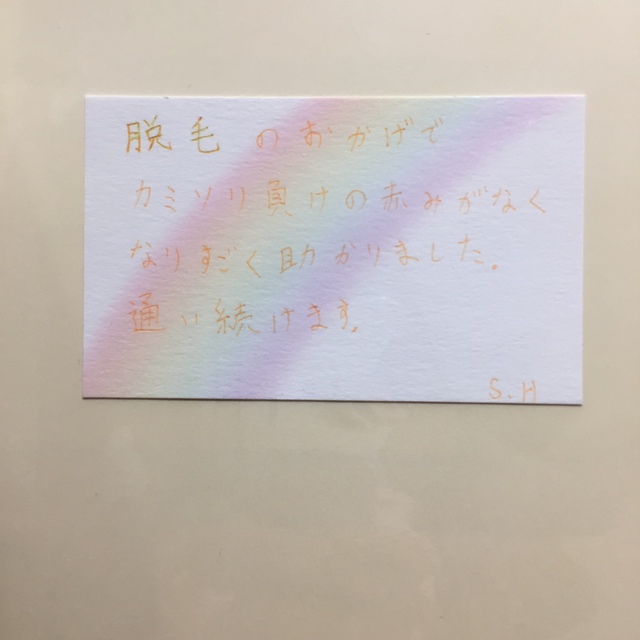 脱毛のおかげで
カミソリ負けの赤みがなく
なりすごく助かりました。
通い続けます。
S.H